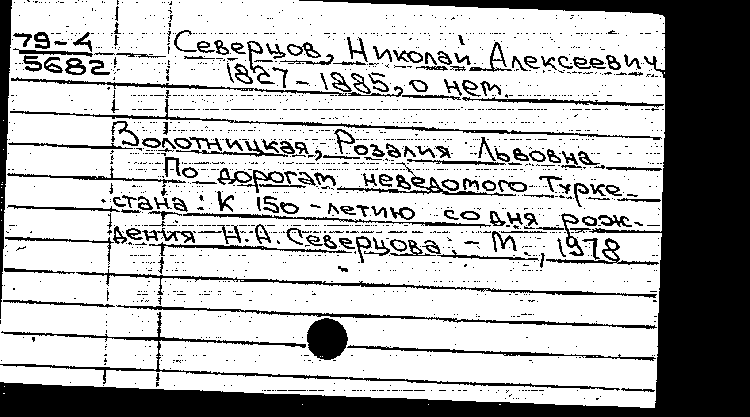 79-4
5682
Северцов, Николай Алексеевич,
1827-1885, о нем.
Золотницкая, Розалия Львовна.
По дорогам неведомого Турке-
стана: К 150-летию со дня рож-
дения Н.А. Северцова. - М., 1978